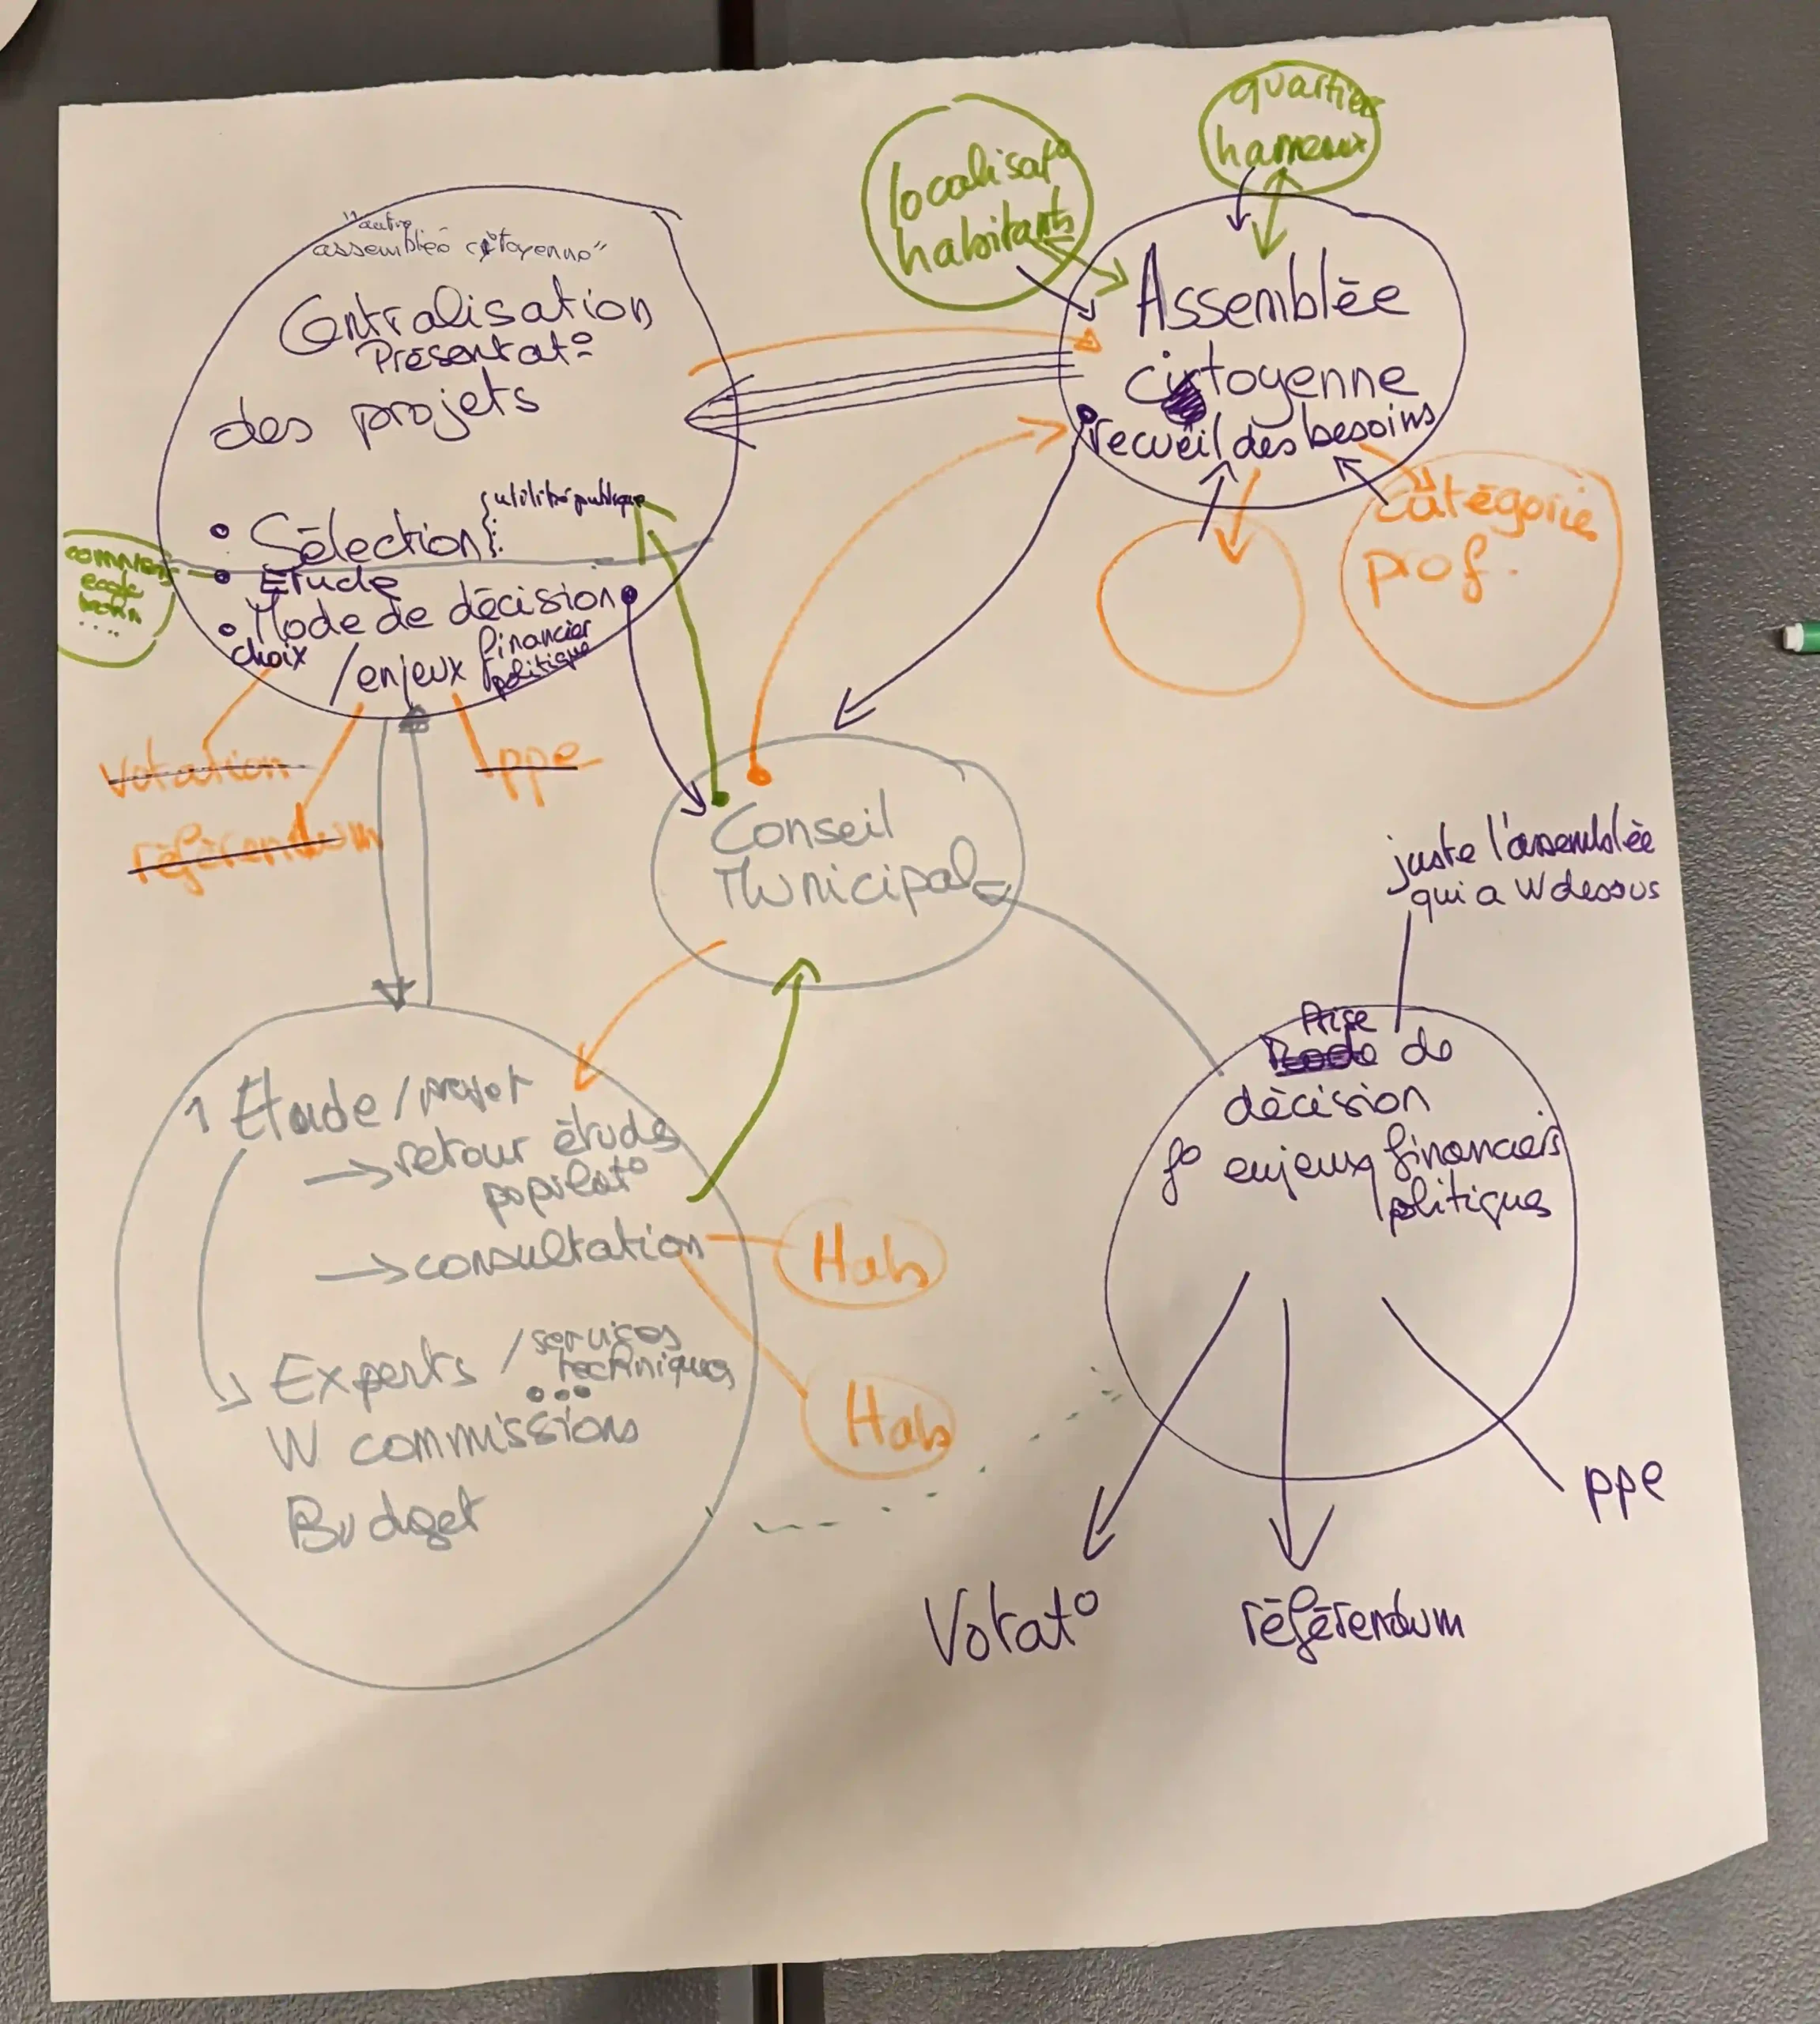 quartiers
hameaux
localisat°
habitants
"autre
assemblée citoyenne"
Centralisation
Présentat°
des projets
• Sélection { utilité publique
• Etude
• Mode de décision
choix
/enjeux financier
politique
votation
référendum
ppe
Assemblée
citoyenne
recueil des besoins
catégorie
prof.
Conseil
Municipal
juste l'assemblée
qui a W dessus
Prise
de
décision
f° enjeux financiers
politiques
Votat°
référendum
ppe
1 Etude / projet
→ retour études
populat°
→ consultation
Habs
Habs
Experts / services
techniques
...
W commissions
Budget